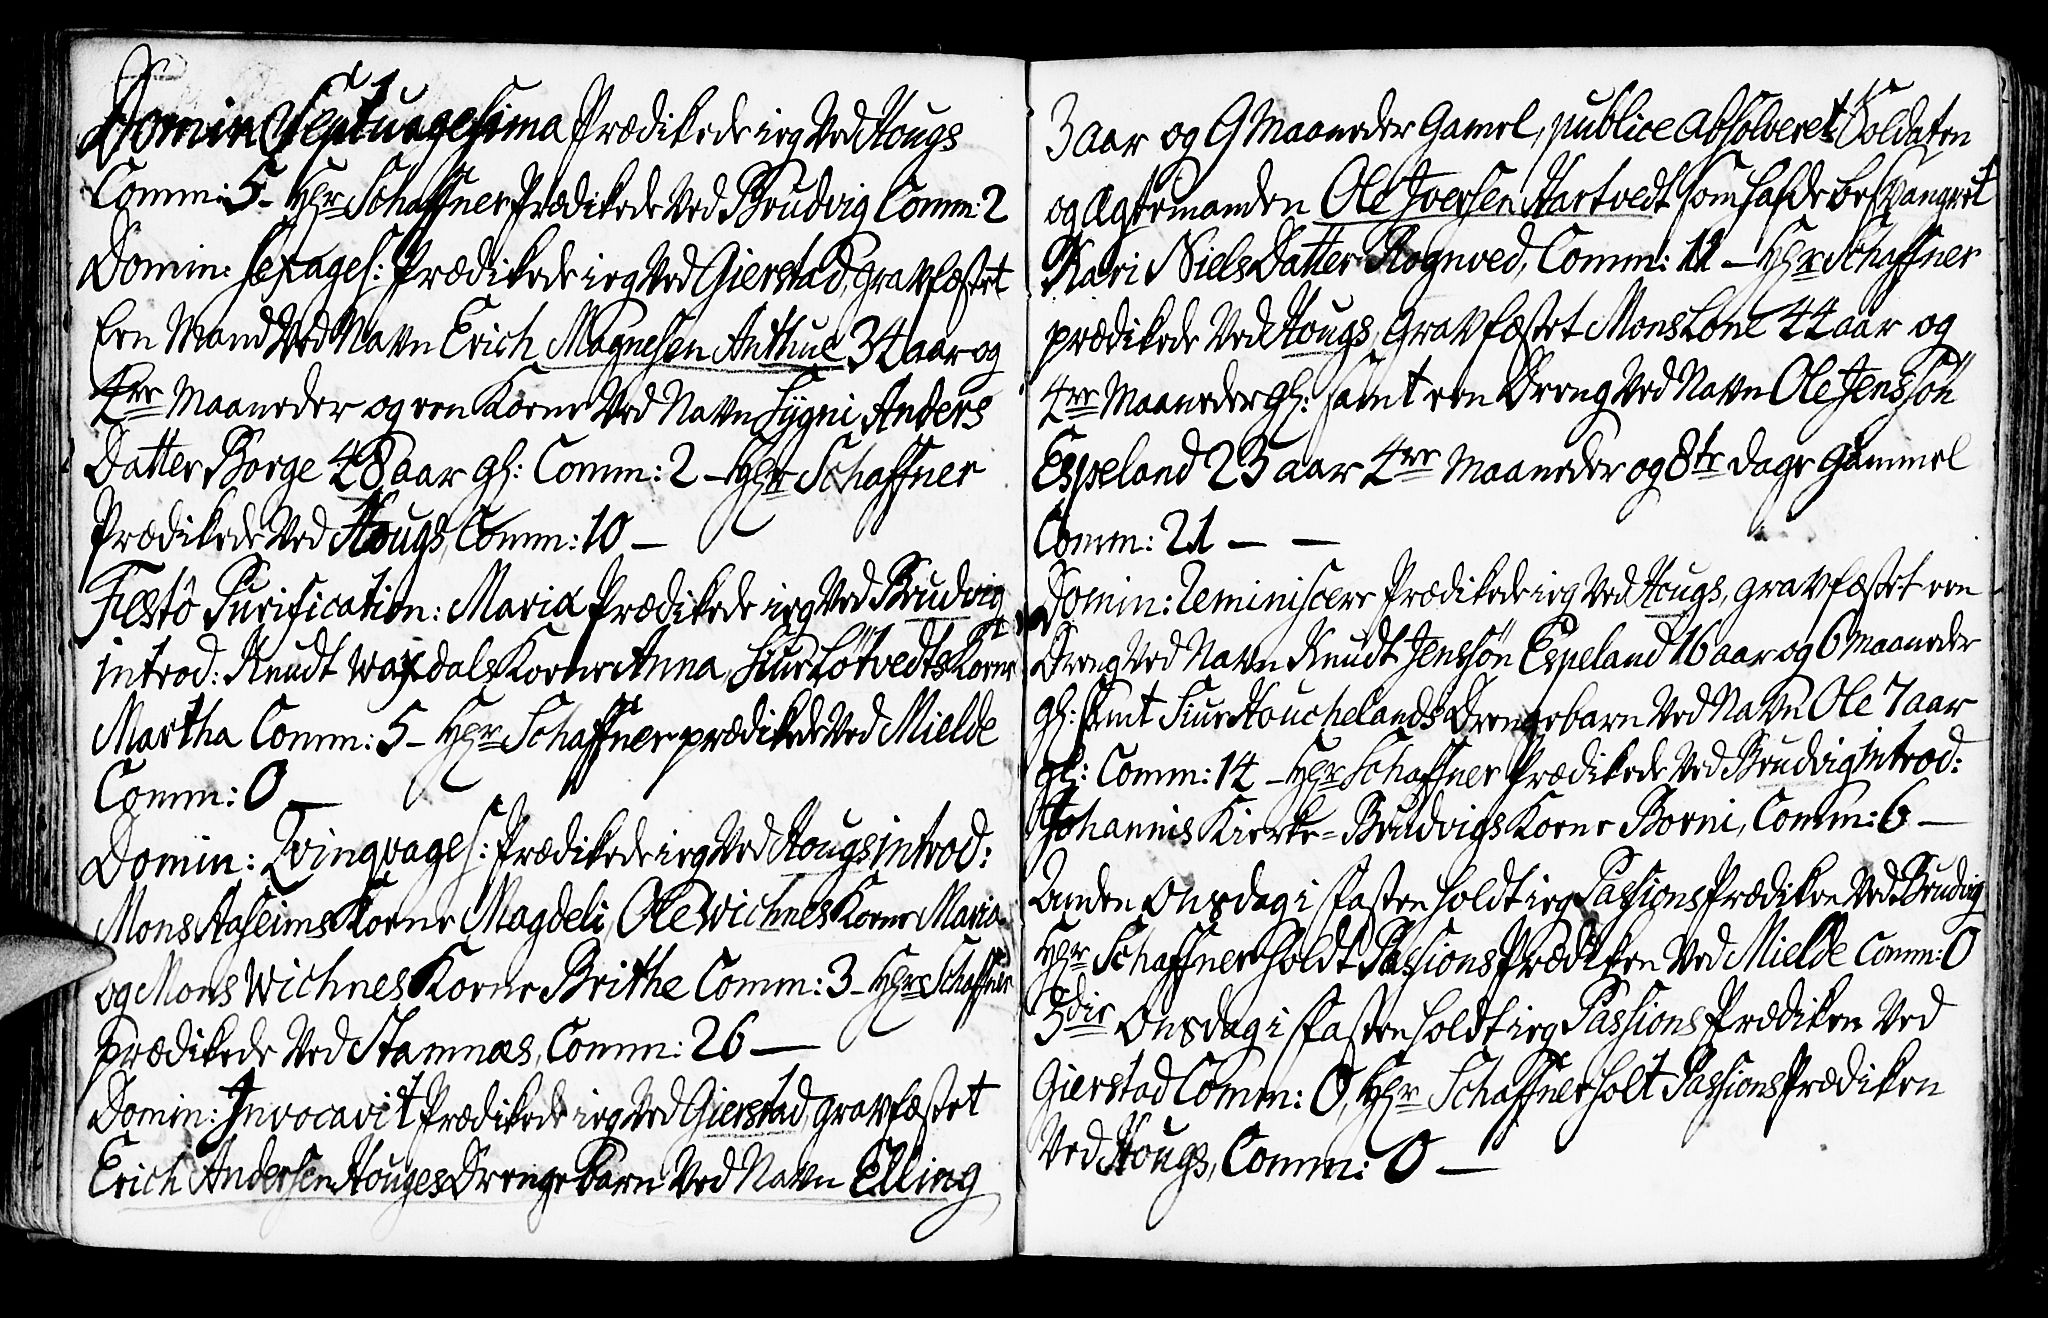 Domin Septuagesima Prædikede ieg Ved Hougs
Comm: 5 - Hr Schaffner Prædikede Ved Brudvig Comm: 2
Domin: Sexages: Prædikede ieg Ved Gierstad, gravfæstet
Een Mand Ved Navn Erich Magnesen Anthue 34 aar og
4re Maaneder og een Kone Ved Navn Sygni Anders
Datter Borge 48 aar gl: Comm: 2 - Hr Schaffner
Prædikede Ved Hougs, Comm: 10 -
Festô Purification: Mariæ Prædikede ieg Ved Brudvig
introd: Knudt Waxdals Kone Anna, Siur Løtvedts Kone
Martha Comm: 5 - Hr Schaffner prædikede Ved Mielde
Comm: 0 -
Domin: Qvinqvages: Prædikede ieg Ved Hougs introd:
Mons Aaseims Kone Magdeli, Ole Wichnes Kone Maria
og Mons Wichnes Kone Brithe Comm: 3 - Hr Schaffner
prædikede Ved Stamnæs, Comm: 26 -
Domin: Invocavit Prædikede ieg Ved Gierstad, gravfæstet
Erich Andersen Houges Drengebarn Ved Navn Elling
3 aar og 9 Maaneder Gamel, publice absolveret Soldaten
og Ægtemanden Ole Iversen Hartvedt som hafde besvangret
Kari Niels Datter Rognved, Comm: 11 - Hr Schaffner
prædikede Ved Hougs, gravfæstet Mons Lone 44 aar og
4re Maaneder gl: samt een Dreng Ved Navn Ole Jenssøn
Espeland 23 aar 4re Maaneder og 8te dage gammel
Comm: 21 - -
Domin: Reminiscere Prædikede ieg Ved Hougs, gravfæstet een
Dreng Ved Navn Knudt Jenssøn Espeland 16 aar og 6 Maaneder
gl: samt Siur Houchelands Drengebarn Ved Navn Ole 7 aar
gl: Comm: 14 - Hr Schaffner Prædikede Ved Brudvig introd:
Johannis Kierke-Brudvigs Kone Borni, Comm: 6 -
Anden Onsdag i Fasten holdt ieg Passions Prædiken Ved Brudvig
Hr Schaffner holdt Passions Prædiken Ved Mielde Comm: 0
3die Onsdag i Fasten holdt ieg Passions Prædiken Ved
Gierstad Comm: 0, Hr Schaffner holt Passions Prædiken
Ved Hougs, Comm: 0 -